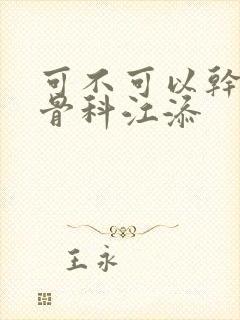 可不可以幹
骨科江添
王永